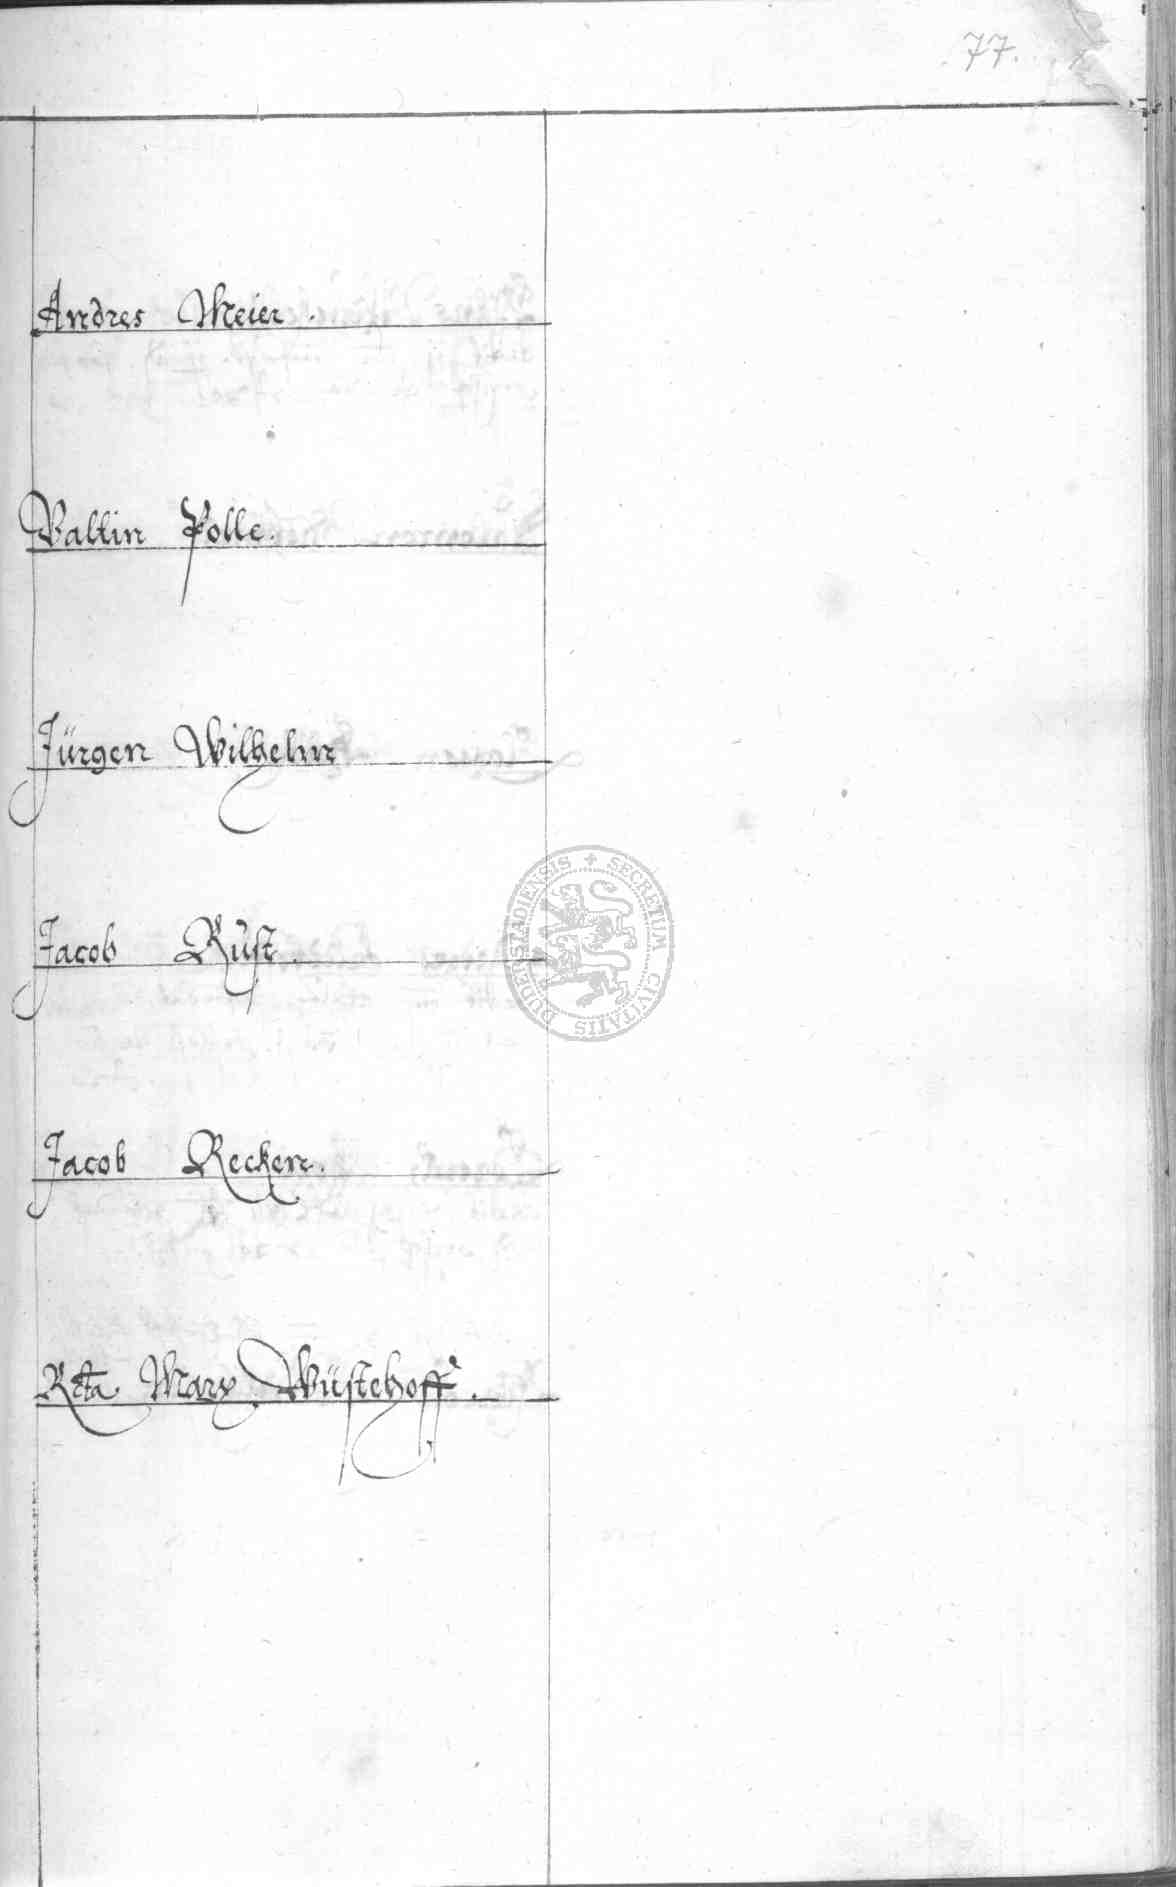 77.
Andres Meier.
Valtin Polle.
Jürgen Wilhelm
Jacob Rust.
Jacob Recken.
Rcta Marx Wüstehoff.
SECRETUM CIVITATIS DUDERSTADIENSIS